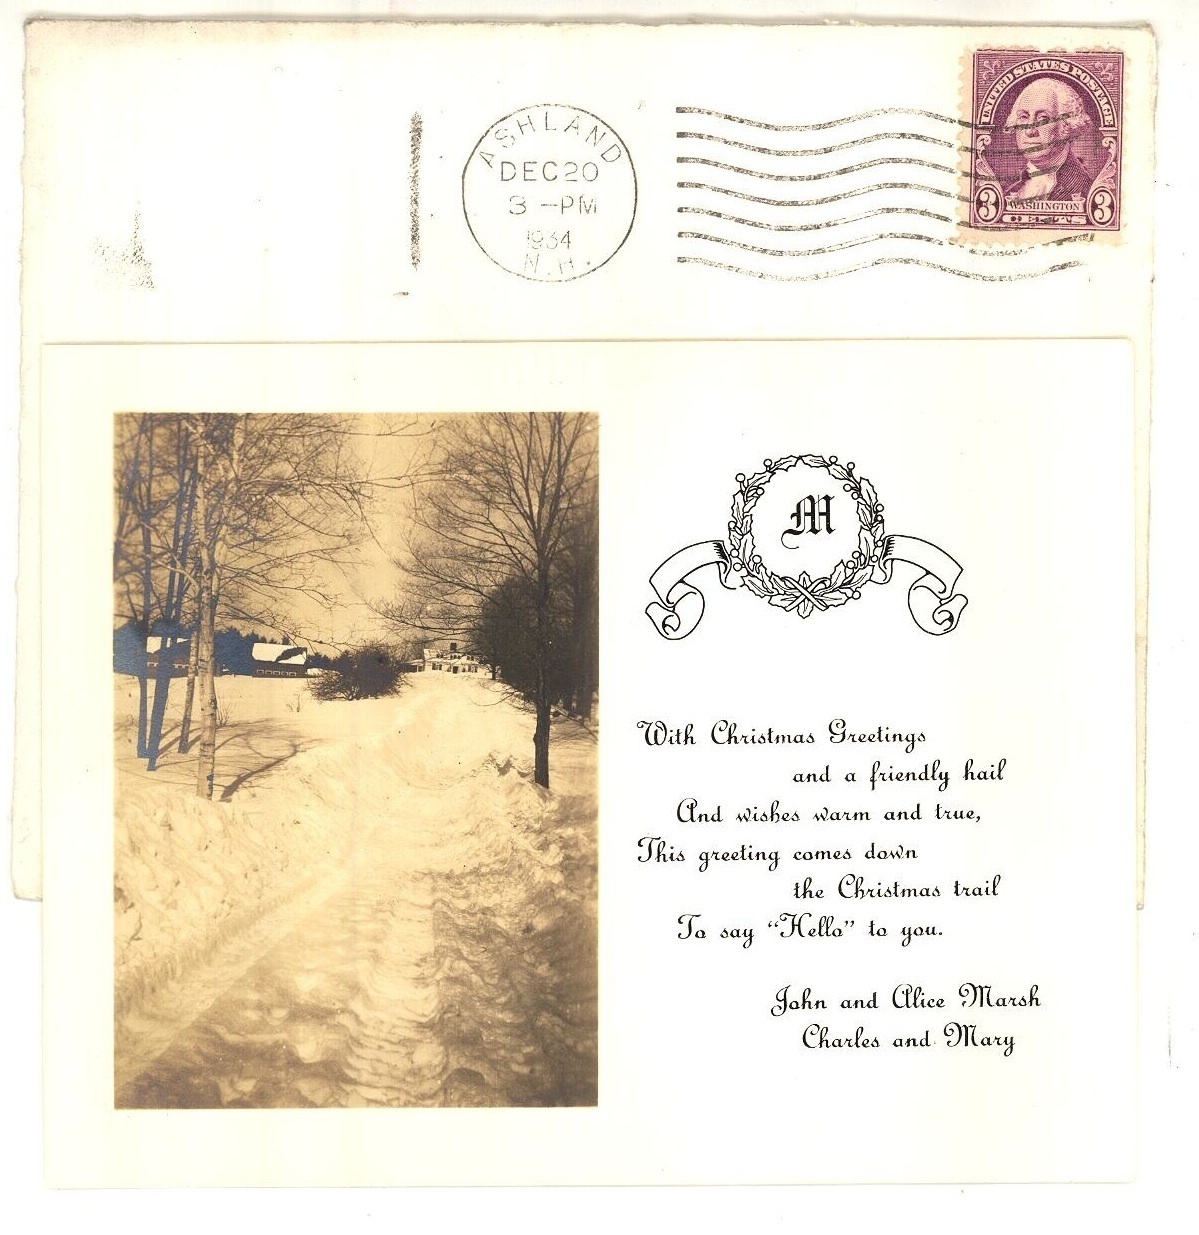 ASHLAND
DEC 20
3 -PM
1934
N.H.
UNITED STATES POSTAGE
WASHINGTON
3 CENTS 3
M
With Christmas Greetings
and a friendly hail
And wishes warm and true,
This greeting comes down
the Christmas trail
To say “Hello” to you.
John and Alice Marsh
Charles and Mary